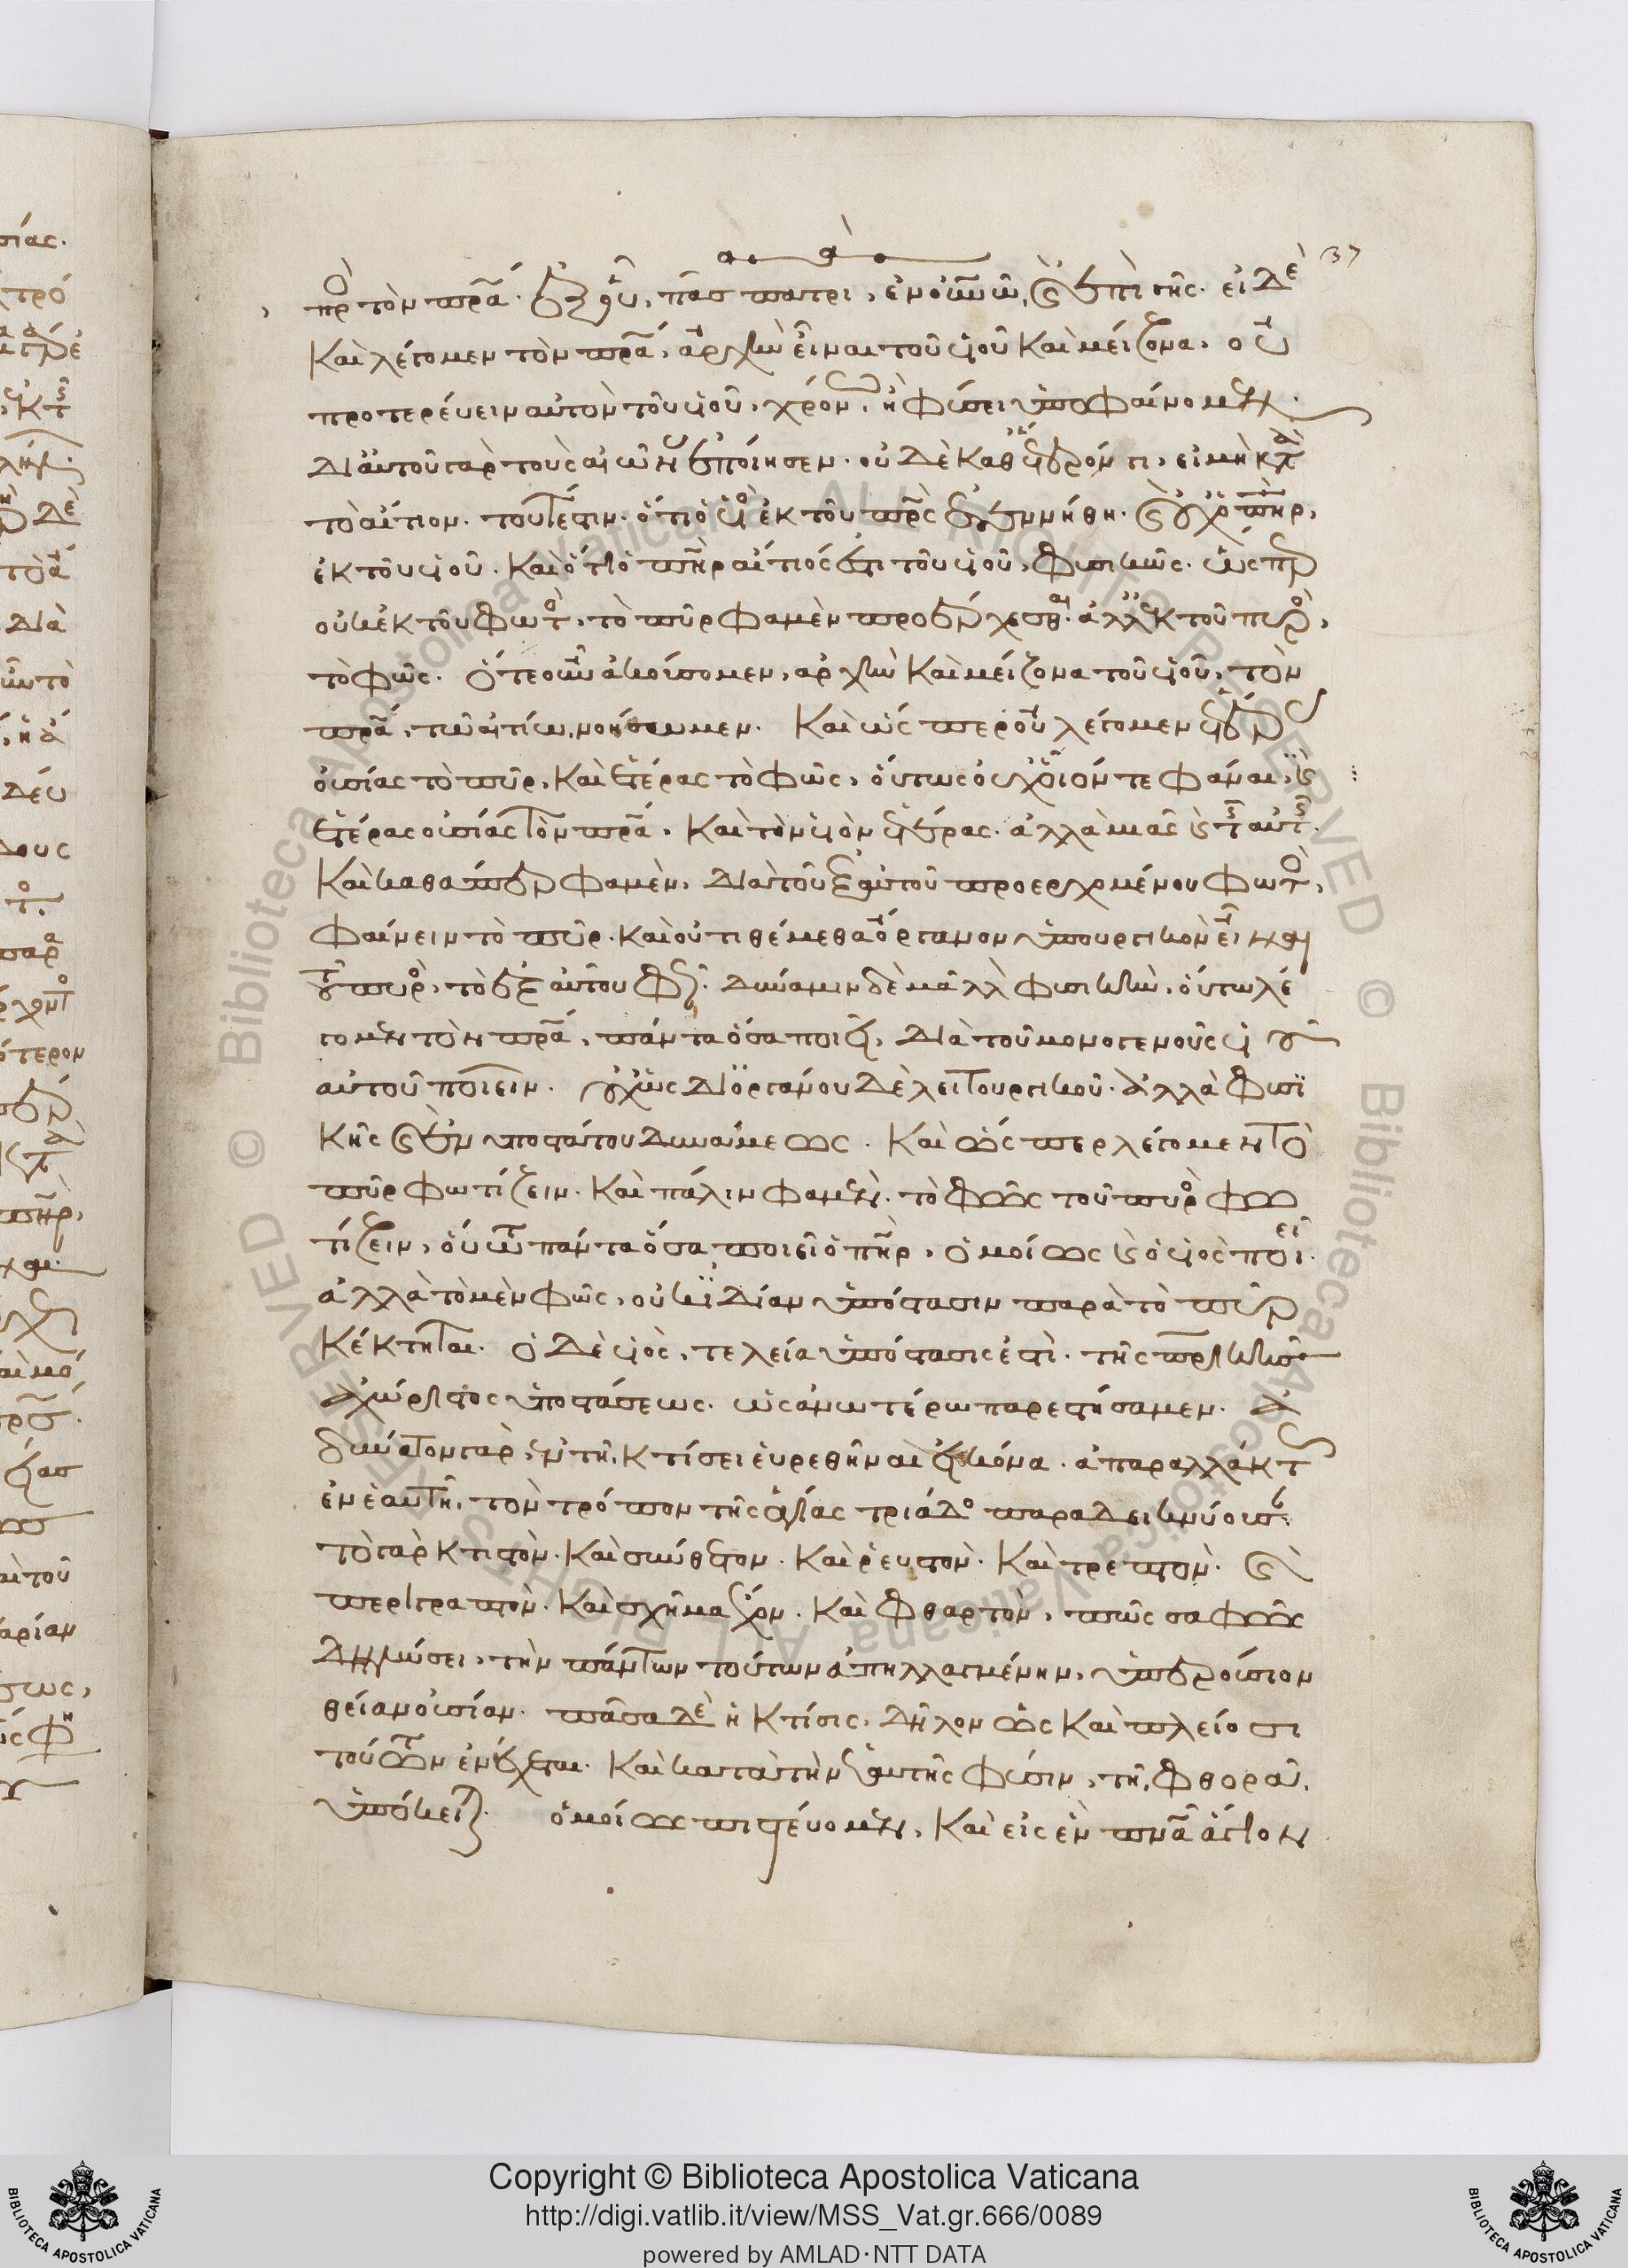 37
πρὸς τὸν πρα. ἐξ οὗ, πᾶσα πατριὰ, ἐν οὐνω, καὶ ἐπὶ γῆς. εἰ δὲ
Καὶ λέγομεν τὸν πρα, ἀρχὴν εἶναι τοῦ υἱοῦ καὶ μείζονα, οὐ
προτερεύειν αὐτὸν τοῦ υἱοῦ, χρόνω ἢ φύσει ὑποφαίνομεν.
Δι αὐτοῦ γὰρ τοὺς αἰῶνας ἐποίησεν. οὐδὲ καθ ἕτερόν τι, εἰ μὴ κατὰ
τὸ αἴτιον. τουτέστιν. ὅτι ὁ υἱὸς ἐκ τοῦ πρς ἐγεννήθη. καὶ οὐχ ὁ πηρ,
ἐκ τοῦ υἱοῦ. Καὶ ὅτι ὁ πηρ αἴτιός ἐστι τοῦ υἱοῦ, φυσικῶς. ὥσπερ
οὐκ ἐκ τοῦ φωτὸς, τὸ πῦρ φαμὲν προέρχεσθαι. ἀλλ ἐκ τοῦ πυρὸς,
τὸ φῶς. ὅτε οὖν ἀκούσομεν, ἀρχὴν καὶ μείζονα τοῦ υἱοῦ, τὸν
πρα, τῶ αἰτίω νοήσωμεν. Καὶ ὥσπερ οὐ λέγομεν ἑτέρας
οὐσίας τὸ πῦρ, καὶ ἑτέρας τὸ φῶς, οὕτως οὐχ οἷόν τε φάναι,
ἑτέρας οὐσίας τὸν πρα. Καὶ τὸν υἱὸν ἑτέρας. ἀλλὰ μιᾶς καὶ τῆς αὐτῆς.
Καὶ καθάπερ φαμὲν, διὰ τοῦ ἐξ αὐτοῦ προερχομένου φωτὸς,
φαίνειν τὸ πῦρ. καὶ οὐ τιθέμεθα ὄργανον ὑπουργικὸν εἶναι
τοῦ πυρὸς, τὸ ἐξ αὐτοῦ φῶς. δύναμιν δὲ μᾶλλον φυσικὴν, οὕτω λέ
γομεν τὸν πρα, πάντα ὅσα ποιεῖ, διὰ τοῦ μονογενοῦς υἱοῦ
αὐτοῦ ποιεῖν. οὐχ ὡς δι ὀργάνου δὲ λειτουργικοῦ. ἀλλὰ φυσι
κῆς καὶ ἐνυποστάτου δυνάμεως. Καὶ ὥσπερ λέγομεν τὸ
πῦρ φωτίζειν. Καὶ πάλιν φαμὲν. τὸ φῶς τοῦ πυρὸς φω
τίζειν, οὕτω πάντα ὅσα ποιεῖ ὁ πηρ, ὁμοίως καὶ ὁ υἱὸς ποιεῖ.
ἀλλὰ τὸ μὲν φῶς, οὐκ ἰδίαν ὑπόστασιν παρὰ τὸ πῦρ
Κέκτηται. ὁ δὲ υἱὸς, τελεία ὑπόστασις ἐστὶ. τῆς πρικῆς
ἀχώριστος ὑποστάσεως. ὡς ἀνωτέρω παρεστήσαμεν. ἀ
δύνατον γὰρ, ἐν τῆ κτίσει εὑρεθῆναι εἰκόνα. ἀπαραλλάκτως
ἐν ἑαυτῆ, τὸν τρόπον τῆς ἁγίας τριάδος παραδεικνύουσαν.
τὸ γὰρ κτιστὸν. Καὶ σύνθετον. Καὶ ῥευστὸν. Καὶ τρεπτὸν. καὶ
περιγραπτὸν. Καὶ σχῆμα ἔχον. Καὶ φθαρτὸν, πῶς σαφῶς
δηλώσει, τὴν πάντων τούτων ἀπηλλαγμένην, ὑπερούσιον
θείαν οὐσίαν. πᾶσα δὲ ἡ κτίσις, δῆλον ὡς καὶ πλείοσι
τούτων ἐνέχεται. Καὶ κατὰ τὴν ἑαυτῆς φύσιν, τῆ φθορᾶ
ὑπόκειται. ὁμοίως πιστεύομεν, Καὶ εἰς ἓν πνα ἅγιον
Copyright © Biblioteca Apostolica Vaticana
http://digi.vatlib.it/view/MSS_Vat.gr.666/0089
powered by AMLAD·NTT DATA
BIBLIOTECA APOSTOLICA VATICANA
BIBLIOTECA APOSTOLICA VATICANA